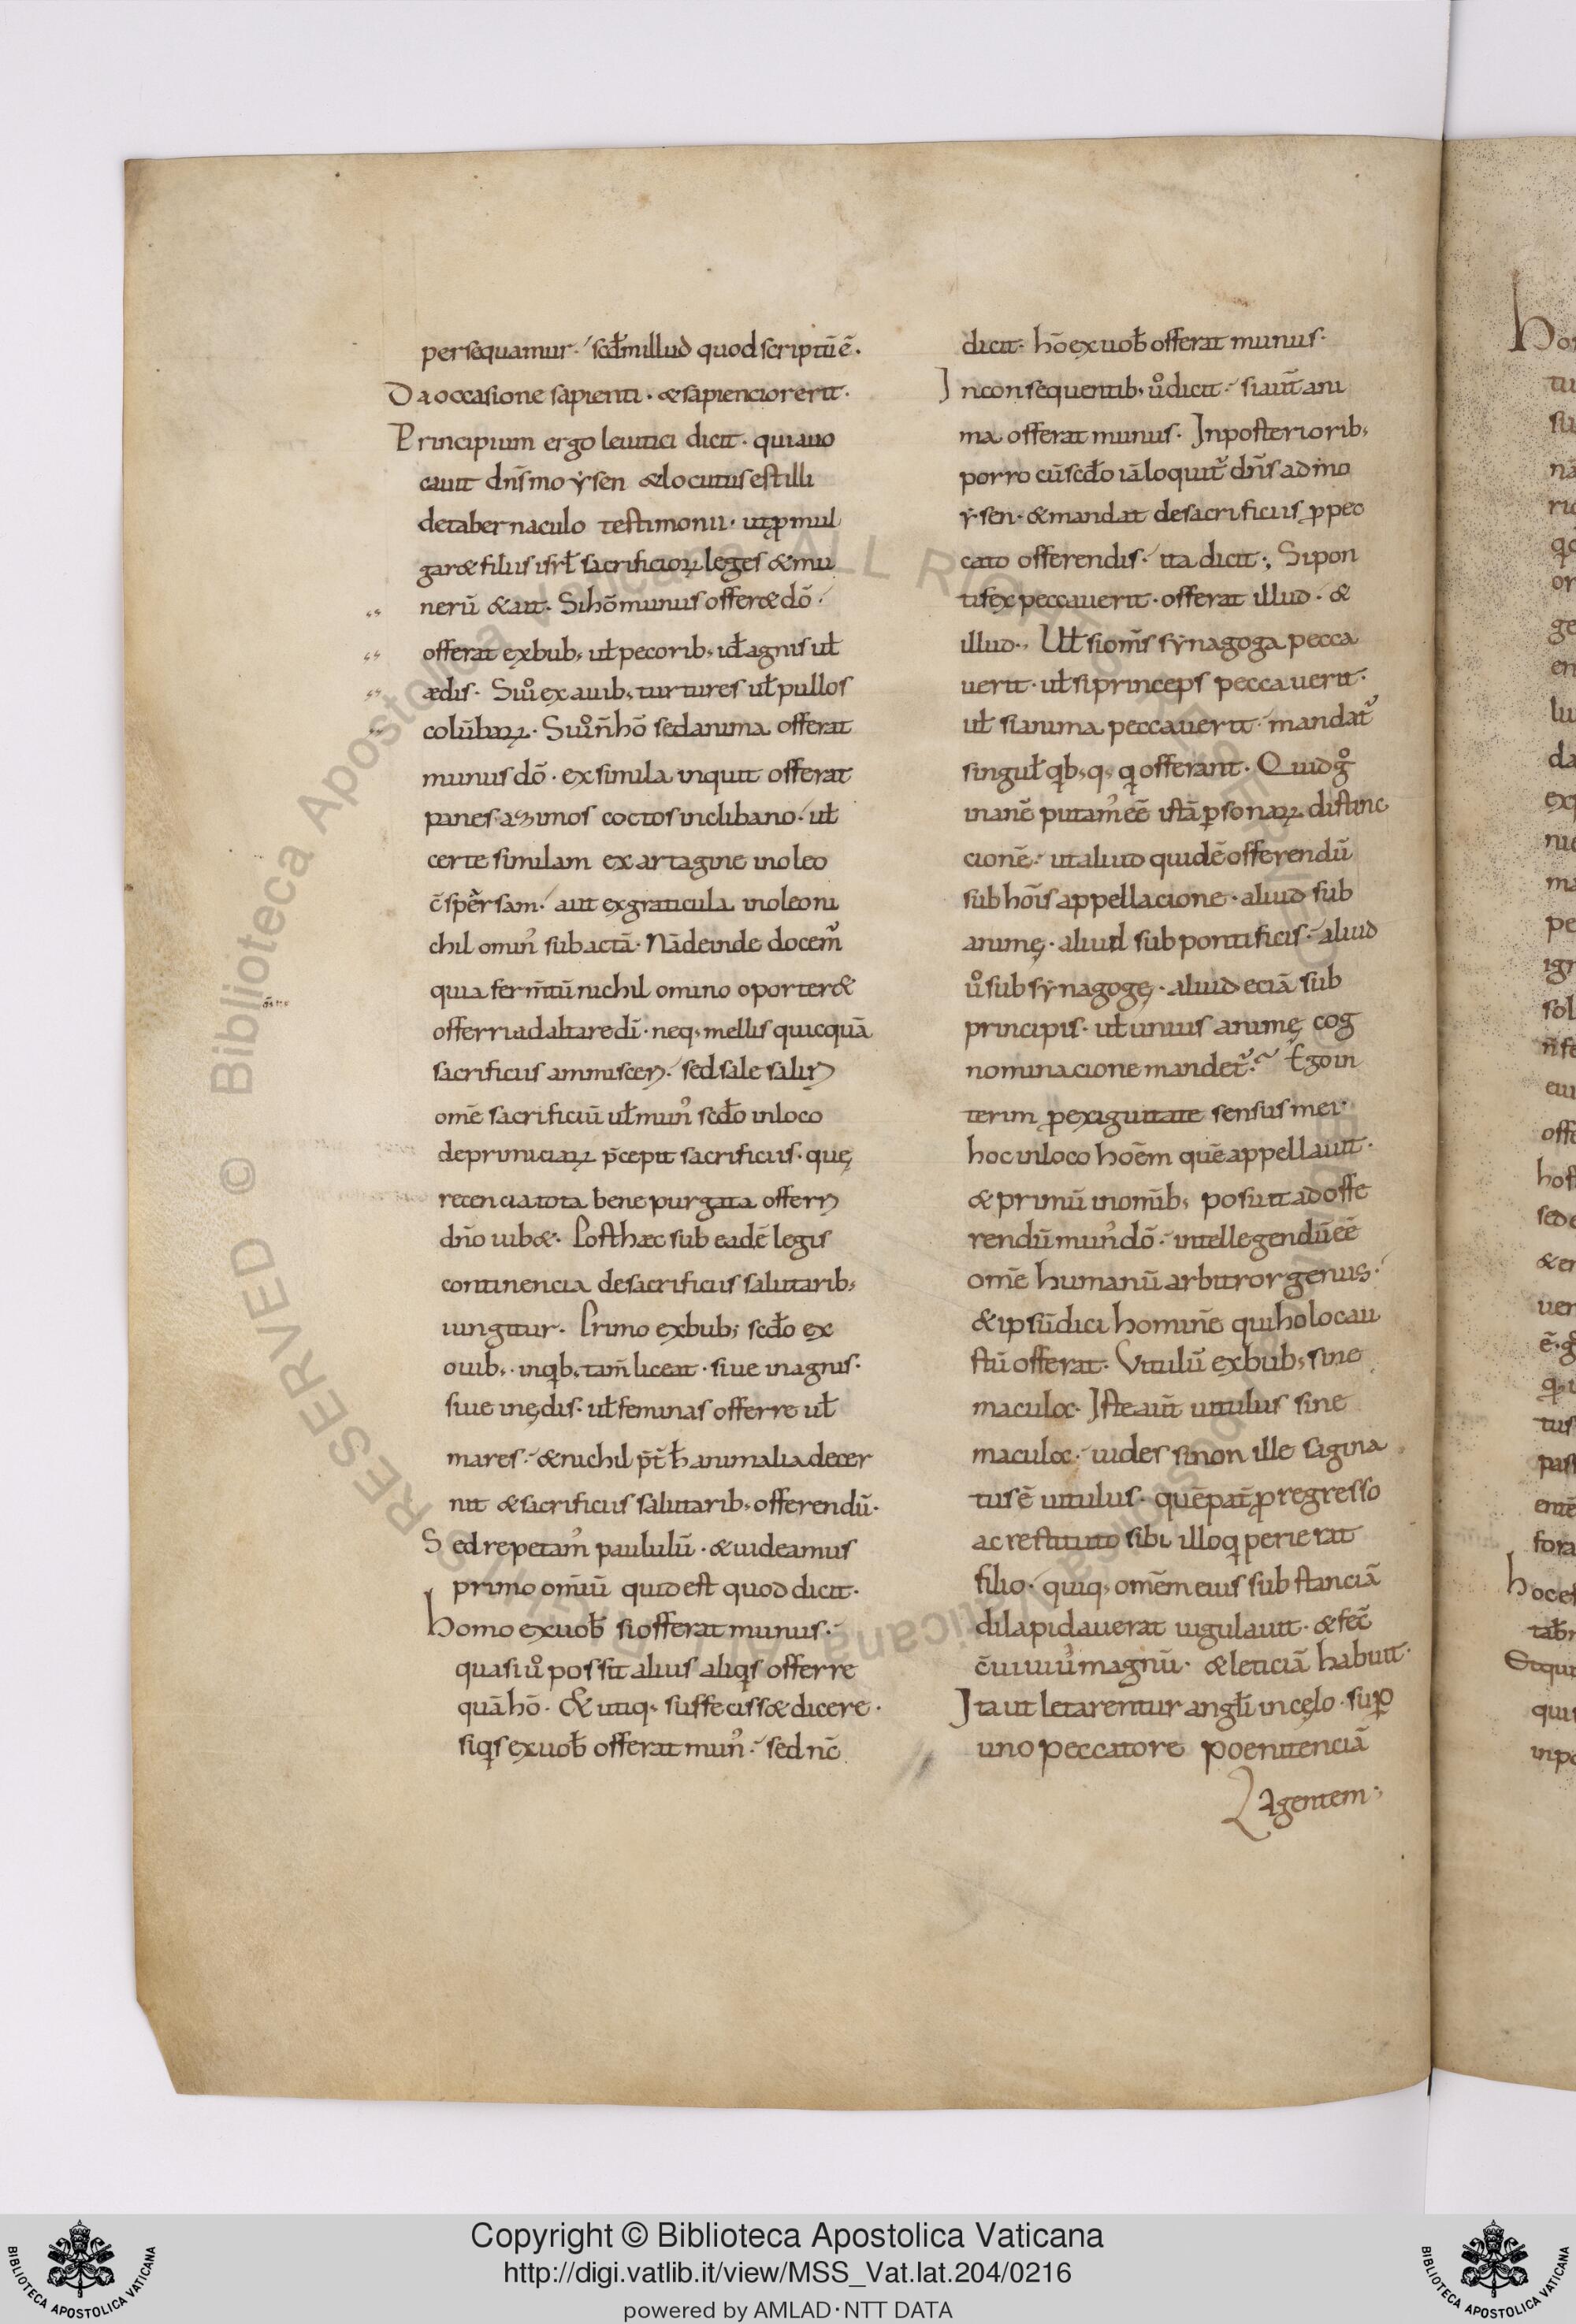 persequamur· scđm illud quod scriptũ ẽ·
Da occasione sapienti· & sapiencior erit·
Principium ergo leuitici dicit· quia uo
cauit dñs moẏsen & locutus est illi
de tabernaculo testimonii· ut ꝓmul
gar& filiis isrł sacrificioꝝ leges & mu
nerũ & ait· Si hõ munus offer& dõ·
offerat ex bub; uł pecorib; id ÷ agnis uł
ædis· Si uͦ ex auib; turtures uł pullos
colũbaꝝ· Si uͦ ñ hõ sed anima offerat
munus dõ· ex simila inquit offerat
panes azimos coctos in clibano· uł
certe similam ex artagine in oleo
c̃spersam· aut ex graticula in oleo ni
chil omin᾽ subactã· Nã deinde docem᾽
quia ferm̃tũ nichil omino oporter&
offerri ad altare dĩ· neq; mellis quicquã
sacrificiis ammisceri· sed sale saliri
om̃e sacrificiũ uł mun᾽ scđo in loco
de primiciaꝝ p̃cepit sacrificiis· quę
recencia tota bene purgata offerri
dño iub&· Post hæc sub eadẽ legis
continencia de sacrificiis salutarib;
iungitur· Primo ex bub; scđo ex
ouib;· in qib; tam̃ liceat· siue in agnis·
siue in ędis· uł feminas offerre uł
mares· & nichil p̃t̃ h̵ animalia decer
nit & sacrificiis salutarib; offerendũ·
Sed repetam᾽ paululũ· & uideamus
primo om̃iũ quid est quod dicit·
Homo ex uob̵ si offerat munus·
quasi uͦ possit alius aliqis offerre
quã hõ· & utiq; suffeciss& dicere·
si qis ex uob̵ offerat mun᾽· sed nc̃
dicit· hõ ex uob̵ offerat munus·
In consequentib; uͦ dicit· si aut̃ ani
ma offerat munus· In posteriorib;
porro cũ scđo iã loquit᾽ dñs ad mo
ẏsen· & mandat de sacrificiis ꝓ pec
cato offerendis· ita dicit·; Si pon
tifex peccauerit· offerat illud· &
illud·; Uł si om̃s sẏnagoga pecca
uerit· uł si princeps peccauerit·
uł si anima peccauerit· mandat᾽
singuł qib; q; qi offerant· Quid gͦ
inanẽ putam᾽ eẽ istã ꝑsonaꝝ distinc
cionẽ· ut aliud quidẽ offerendũ
sub hoĩs appellacione· aliud sub
animę· aliud sub pontificis· aliud
uͦ sub sẏnagogę· aliud eciã sub
principis· uł unius animę cog
nominacione mandet᾽· Ego in
terim ꝓ exiguitate sensus mei
hoc in loco hoẽm quẽ appellauit·
& primũ in om̃ib; posuit ad offe
rendũ mun᾽ dõ· intellegendũ eẽ
om̃e humanũ arbitror genus·
& ipsũ dici homiñe qui holocau
stũ offerat· Vitulũ ex bub; sine
macula· Iste aut̃ uitulus sine
macula· uides si non ille sagina
tus ẽ uitulus· quẽ pat̃ ꝓ regresso
ac restituto sibi illo qi perierat
filio· quiq; om̃em eius substanciã
dilapidauerat iugulauit· & fec̃
c̃uiuiũ magnũ· & leticiã habuit·
Ita ut letarentur angłi in cęlo· suꝑ
uno peccatore poenitenciã
Agentem·
Copyright © Biblioteca Apostolica Vaticana
http://digi.vatlib.it/view/MSS_Vat.lat.204/0216
powered by AMLAD·NTT DATA